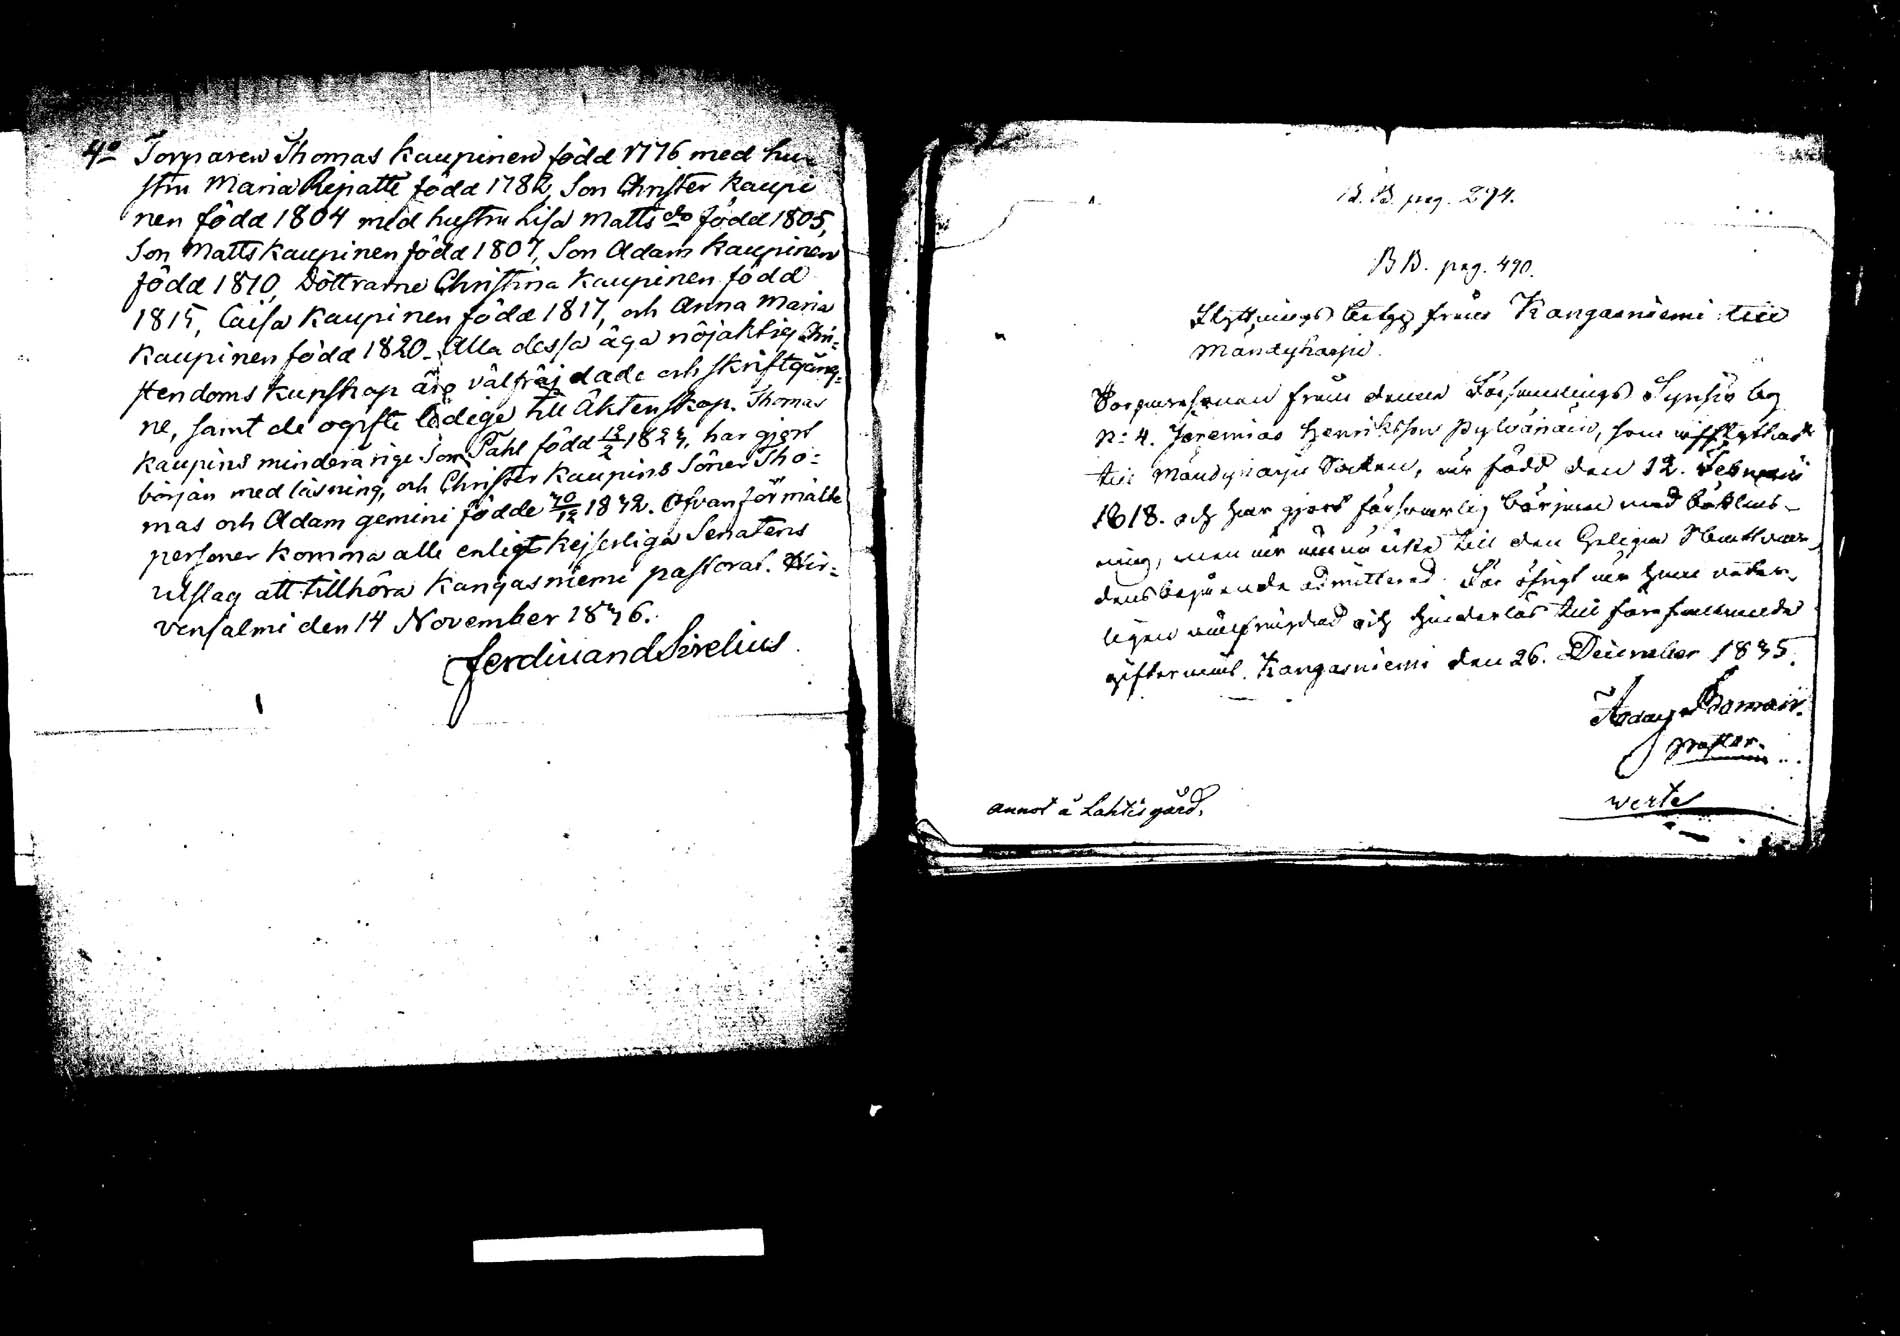 4o Torparen Thomas Kaupinen född 1776 med hu-
stru Maria Repatti född 1782, Son Christer Kaupi
nen född 1804 med hustru Lisa Matts do född 1805,
Son Matts Kaupinen född 1807, Son Adam Kaupinen
född 1810, Döttrarne Christina Kaupinen född
1815, Caisa Kaupinen född 1817, och Anna Maria
Kaupinen född 1820 - Alla dessa äga nöjaktig Chri-
stendoms kunskap äro välfräjdade och skriftgång-
ne, samt de ogifte lediga till äktenskap. Thomas
Kaupins minderårige Son Pähl född 12/2 1823, har gjort
början med läsning, och Christer Kaupins Söner Tho-
mas och Adam gemini födde 30/12 1832. Ofvanförmälte
personer komma alla enligt Kejserliga Senatens
utslag att tillhöra Kangasniemi pastorat. Hir-
vensalmi den 14 November 1836.
Ferdinand Sirelius
B.B. pag. 294.
BB. pag. 490.
Flyttnings betyg från Kangasniemi till
Mändyharju.
från denna Församlings Synsiö by
No 4. Jeremias Henriksson Pylvänäin, som afflyttar
till Mändyharju Socken, är född den 12. Februarii
1818. och har gjort försvarlig början med bokläs-
ning, men är ännu icke till den Heliga Nattvar-
dens begående admitterad. För öfrigt är han
ligen och hinderlös till förefallande
giftermål. Kangasniemi den 26. December 1835.
Pastor.
annot å Lahtis gård.
verte